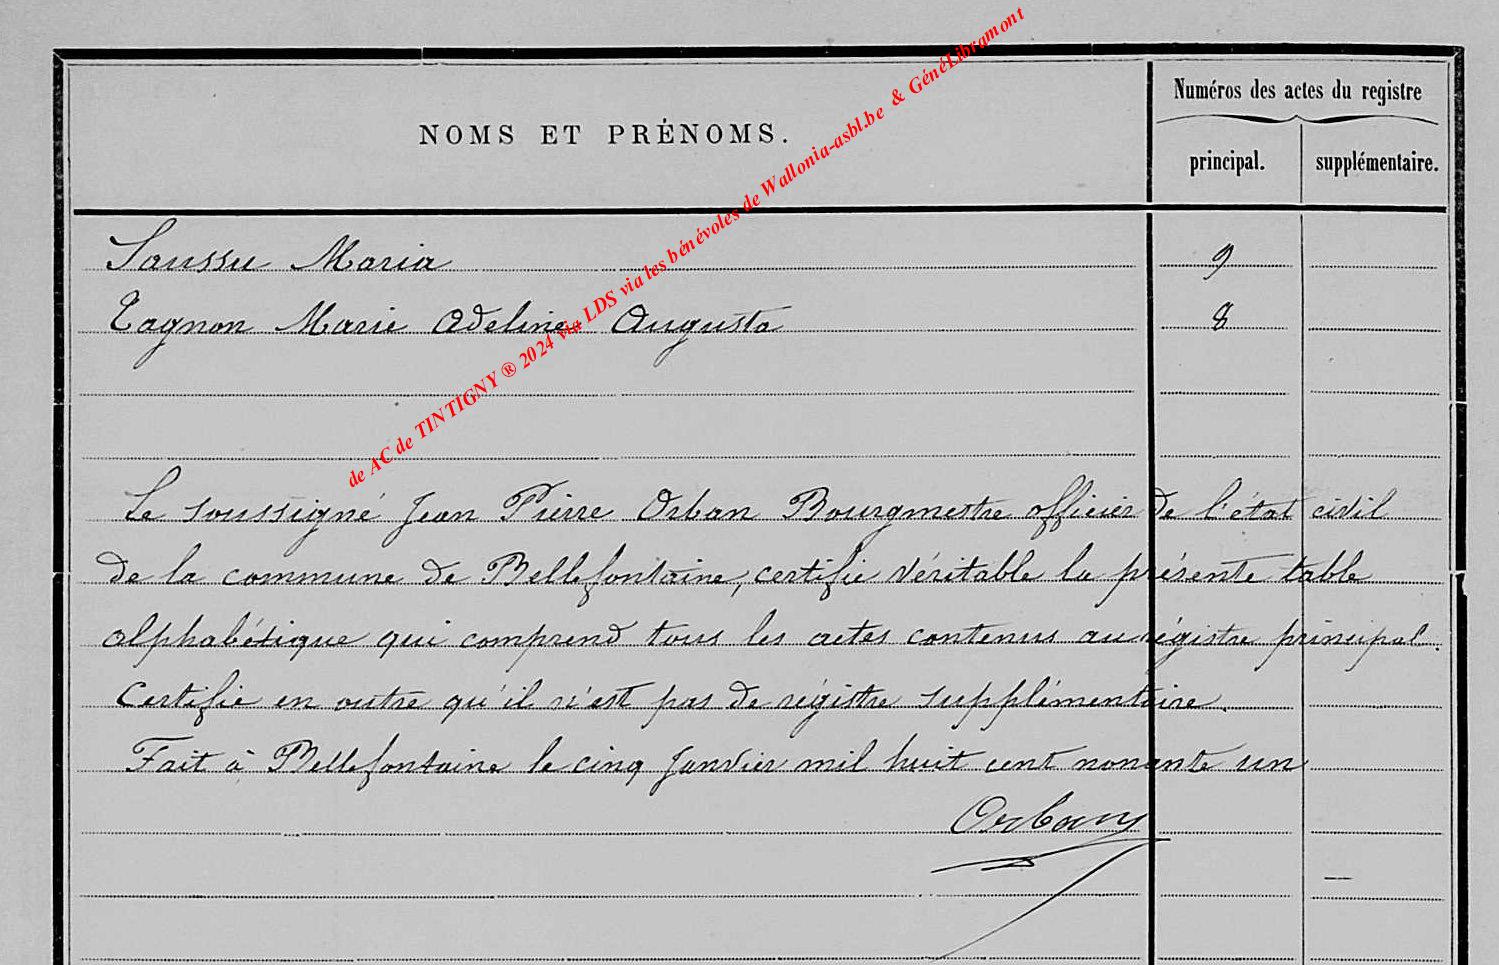 Numéros des actes du registre
NOMS ET PRÉNOMS.
principal. supplémentaire.
Saussu Maria 9
Tagnon Marie Adeline Augusta 8
de AC de TINTIGNY ® 2024 via LDS via les bénévoles de Wallonia-asbl.be & GénéLibramont
Le soussigné Jean Pierre Orban Bourgmestre officier de l'état civil
de la commune de Bellefontaine, certifie véritable la présente table
alphabétique qui comprend tous les actes contenus au régistre principal.
Certifie en outre qu'il n'est pas de régistre supplémentaire.
Fait à Bellefontaine le cinq Janvier mil huit cent nonante un
Orban